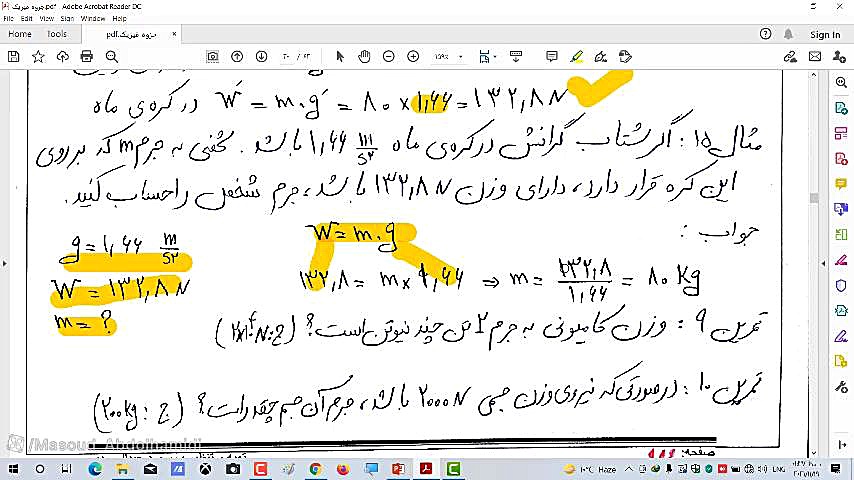 جزوه فیزیک.pdf - Adobe Acrobat Reader DC
File Edit View Sign Window Help
Home Tools جزوه فیزیک.pdf × Sign In
۱۵۹%
W = m.g = ۸۰ × ۱,۶۶ = ۱۳۲,۸ N در کره‌ی ماه
مثال ۱۵: اگر شتاب گرانش در کره‌ی ماه ۱,۶۶ m/s² باشد. شخصی به جرم m که بر روی
این کره قرار دارد، دارای وزن ۱۳۲,۸ N باشد، جرم شخص را حساب کنید.
جواب:
g = ۱,۶۶ m/s² W = m.g
W = ۱۳۲,۸ N ۱۳۲,۸ = m × ۱,۶۶ ⇒ m = ۱۳۲,۸/۱,۶۶ = ۸۰ Kg
m = ?
تمرین ۹: وزن کامیونی به جرم ۲ تن چند نیوتن است؟
تمرین ۱۰: در صورتی که نیروی وزن جسمی ۲۰۰۰N باشد، جرم آن جسم چقدر است؟ (ج: ۲۰۰kg)
/Masoud_Abdolhamidi
صفحه:
Haze ENG